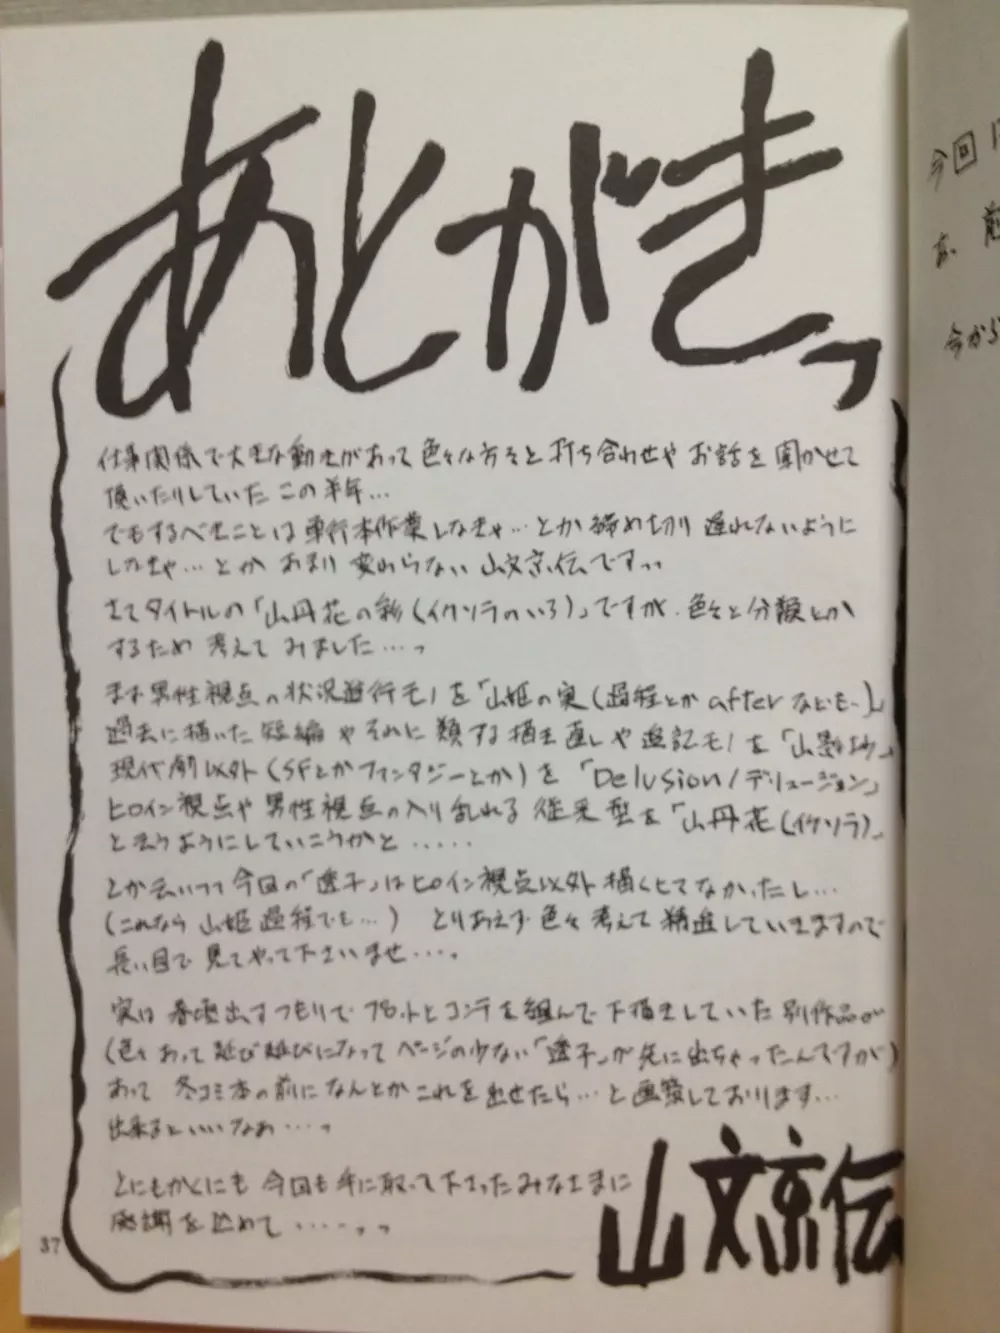 あとがきっ
仕事関係で大きな動きがあって色々な方々と打ち合わせやお話を聞かせて
頂いたりしていたこの半年…
でもするべきことは単行本作業しなきゃ…とか締め切り遅れないように
しなきゃ…とかあまり変わらない山文京伝ですっ
さてタイトルの「山丹花の彩(イケソラのいろ)」ですが、色々と分類とか
するため考えてみました…っ
まず男性視点の状況進行モノを「山姫の実(過程とかafterなども…)」
過去に描いた短編やそれに類する描き直しや追記モノを「山影抄」
現代劇以外(SFとかファンタジーとか)を「Delusion/デリュージョン」
ヒロイン視点や男性視点の入り乱れる従来型を「山丹花(イケソラ)」
と云うようにしていこうかと……
とか云いつつ今回の「透子」はヒロイン視点以外描くヒマなかったし…
(これなら山姫過程でも…) とりあえず色々考えて精進していきますので
長い目で見てやって下さいませ…。
実は春頃出すつもりでプロットとコンテを組んで下描きしていた別作品が
(色々あって延び延びになってページの少ない「透子」が先に出ちゃったんですが)
あって 冬コミ本の前になんとかこれを出せたら…と画策しております…
出来るといいなぁ…っ
とにもかくにも今回も手に取って下さったみなさまに
感謝を込めて……っっ
山文京伝
37
今回
今から